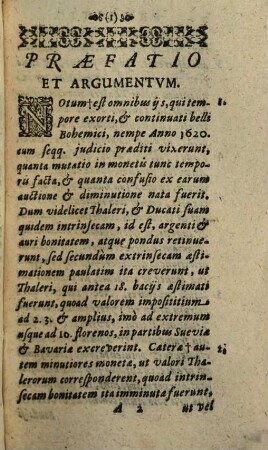 (1)
PRÆFATIO
ET ARGUMENTVM.
NOtum†est omnibus ijs, qui tem- 1.
pore exorti, & continuati belli
Bohemici, nempe Anno 1620.
cum seqq. judicio præditi vixerunt,
quanta mutatio in monetis tunc tempo-
ris facta, & quanta confusio ex earum
auctione & diminutione nata fuerit.
Dum videlicet Thaleri, & Ducati suam
quidem intrinsecam, id est, argenti &
auri bonitatem, atque pondus retinue-
runt, sed secundùm extrinsecam æsti-
mationem paulatim ita creverunt, ut
Thaleri, qui antea 18. bacijs æstimati
fuerunt, quoad valorem impositititium
ad 2. 3. & amplius, imò ad extremum
usque ad 10. florenos, in partibus Sueviæ
& Bavariæ excreverint. Cæteræ†au- 2.
tem minutiores monetæ, ut valori Tha-
lerorum corresponderent, quoad intrin-
secam bonitatem ita imminutæ fuerunt,
A 2 ut vel